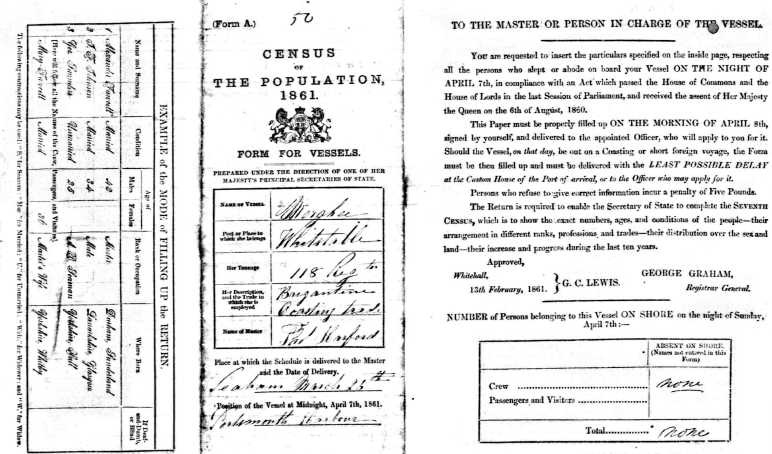 EXAMPLE of the MODE of FILLING UP the RETURN.
Name and Surname
Condition
Age of
Males
Females
Rank or Occupation
Where Born
If Deaf-and-Dumb, or Blind
1 Alexander Married 42 Master Durham, Sunderland
2 Johnson Married 34 Mate Lanarkshire, Glasgow
3 Geo. Saunders Unmarried 25 A. B. Seaman Yorkshire, Hull
(Here will follow all the Names of the Crew, Passengers, and Visitors.)
Mary Married 36 Master's Wife Yorkshire, Whitby
The following contractions may be used:
(Form A.)
50
CENSUS
OF
THE POPULATION,
1861.
FORM FOR VESSELS.
PREPARED UNDER THE DIRECTION OF ONE OF HER
MAJESTY'S PRINCIPAL SECRETARIES OF STATE.
NAME OF VESSEL
Port or Place to which she belongs
Whitstable
Her Tonnage
118 Reg tn
Her Description, and the Trade in which she is employed
Brigantine
Coasting trade
Name of Master
Harford
Place at which the Schedule is delivered to the Master
and the Date of Delivery.
Seaham March 25th
Position of the Vessel at Midnight, April 7th, 1861.
Portsmouth Harbour
TO THE MASTER OR PERSON IN CHARGE OF THE VESSEL.
YOU are requested to insert the particulars specified on the inside page, respecting
all the persons who slept or abode on board your Vessel ON THE NIGHT OF
APRIL 7th, in compliance with an Act which passed the House of Commons and the
House of Lords in the last Session of Parliament, and received the assent of Her Majesty
the Queen on the 6th of August, 1860.
This Paper must be properly filled up ON THE MORNING OF APRIL 8th,
signed by yourself, and delivered to the appointed Officer, who will apply to you for it.
Should the Vessel, on that day, be out on a Coasting or short foreign voyage, the Form
must be then filled up and must be delivered with the LEAST POSSIBLE DELAY
at the Custom House of the Port of arrival, or to the Officer who may apply for it.
Persons who refuse to give correct information incur a penalty of Five Pounds.
The Return is required to enable the Secretary of State to complete the SEVENTH
CENSUS, which is to show the exact numbers, ages, and conditions of the people—their
arrangement in different ranks, professions, and trades—their distribution over the sea and
land—their increase and progress during the last ten years.
Approved,
Whitehall,
13th February, 1861.
G. C. LEWIS.
GEORGE GRAHAM,
Registrar General.
NUMBER of Persons belonging to this Vessel ON SHORE on the night of Sunday,
April 7th:—
ABSENT ON SHORE.
(Names not entered in this Form)
Crew none
Passengers and Visitors
Total none